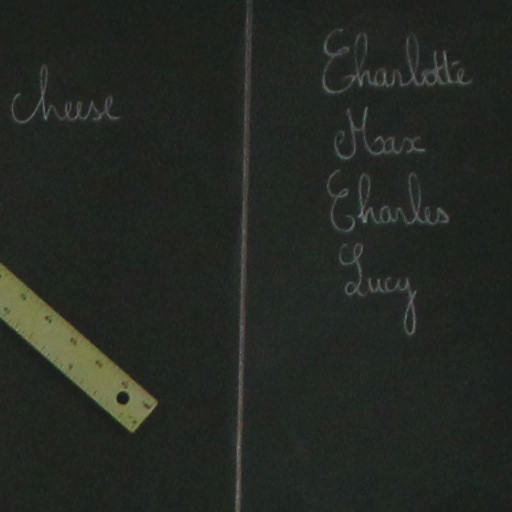 cheese
Charlotte
Max
Charles
Lucy